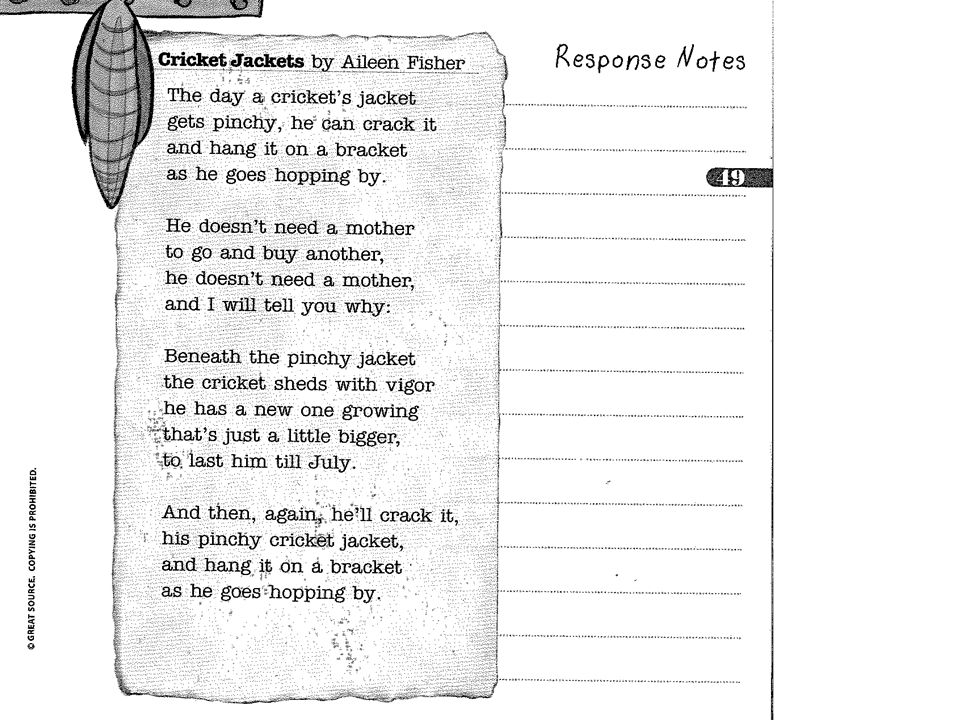 Cricket Jackets by Aileen Fisher
The day a cricket's jacket
gets pinchy, he can crack it
and hang it on a bracket
as he goes hopping by.
He doesn't need a mother
to go and buy another,
he doesn't need a mother,
and I will tell you why:
Beneath the pinchy jacket
the cricket sheds with vigor
he has a new one growing
that's just a little bigger,
to last him till July.
And then, again, he'll crack it,
his pinchy cricket jacket,
and hang it on a bracket
as he goes hopping by.
Response Notes
49
© GREAT SOURCE. COPYING IS PROHIBITED.